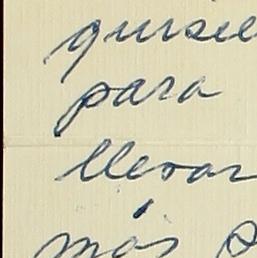 quise
para
llevar
más